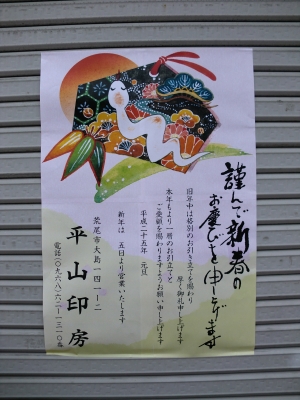 謹んで新春の
お慶びを申し上げます
旧年中は格別のお引き立てを賜わり
厚く御礼申し上げます
本年もより一層のお引立てと
ご愛顧を賜わりますようお願い申し上げます
平成二十五年 元旦
新年は 五日より営業いたします
荒尾市大島一四一-二
平山印房
電話(〇九六八)六二-一三一〇番